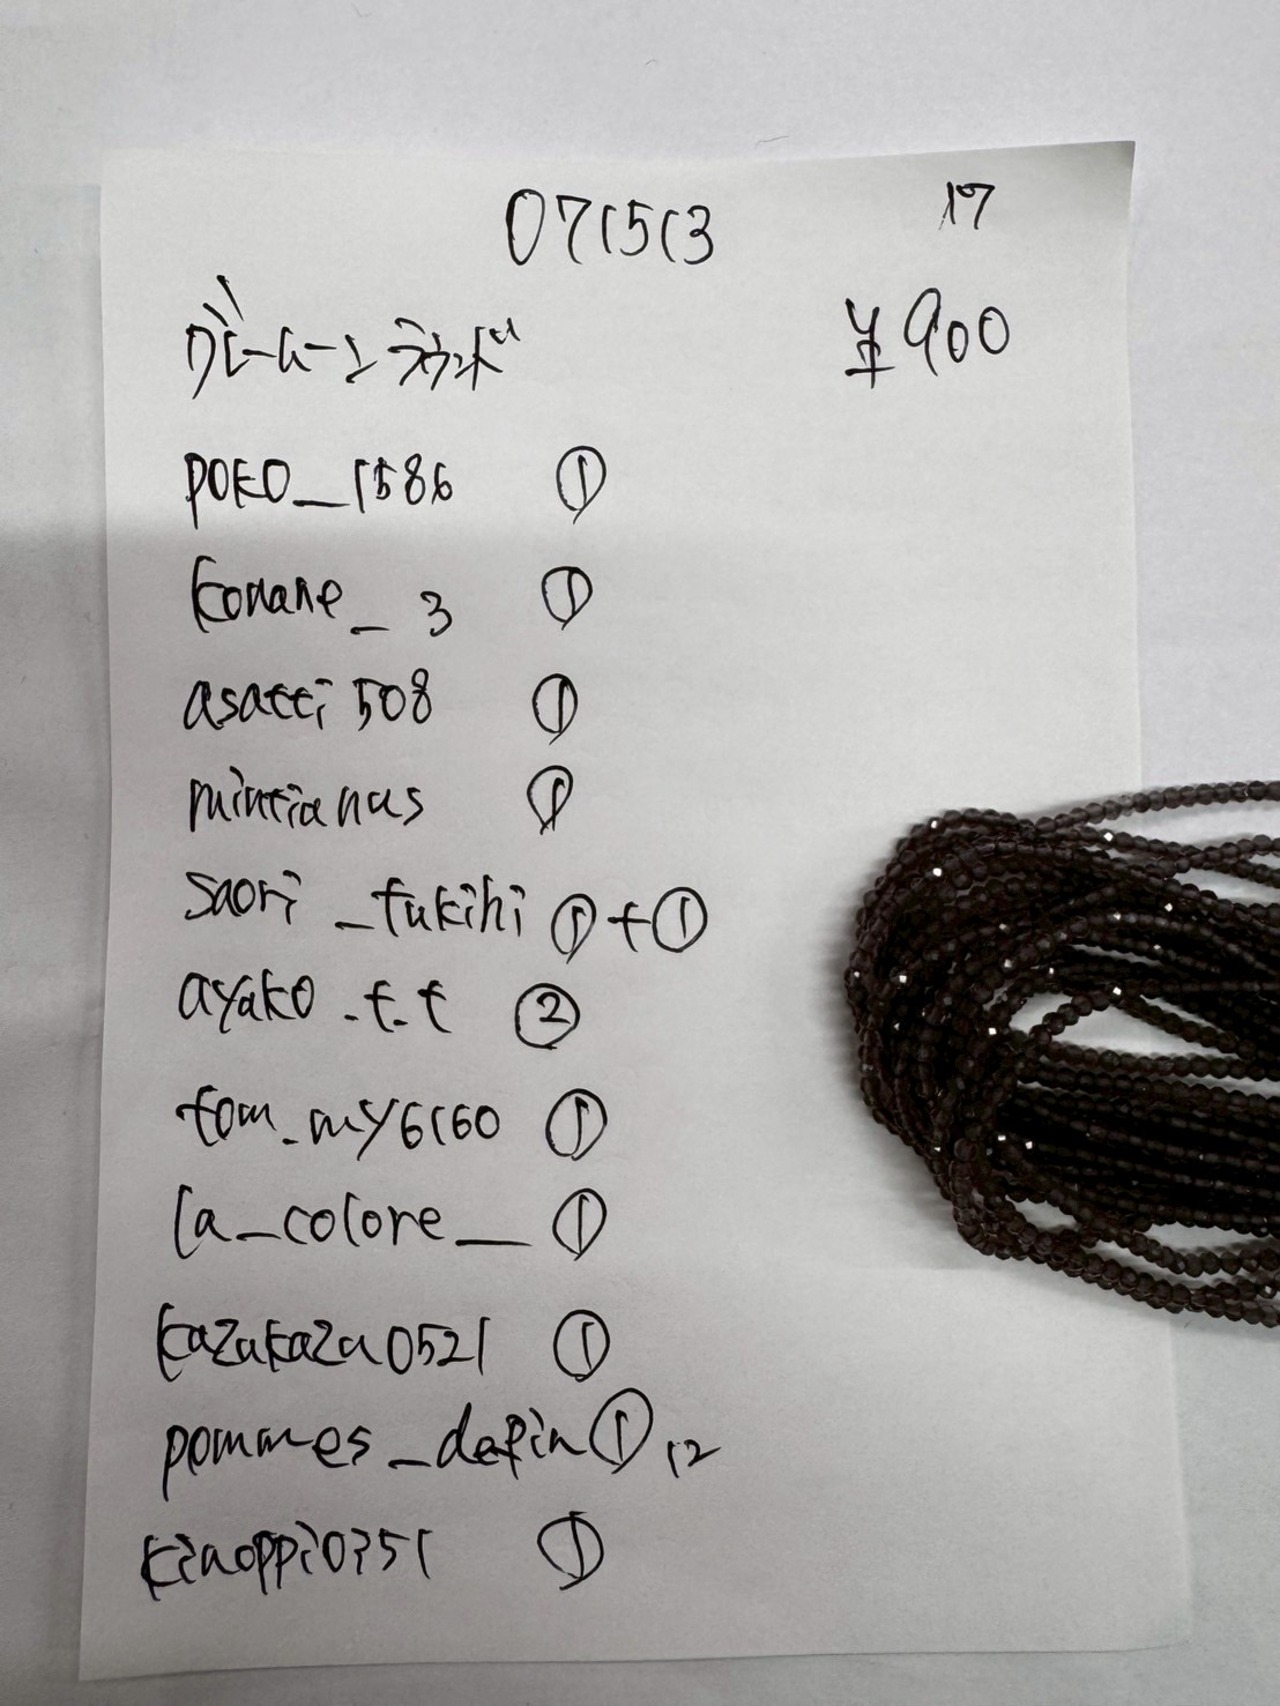 071513 17
グレームーンラウンド ¥900
poko_1586 ①
konane_3 ①
asatti508 ①
mintianus ①
saori_fukihi ①+①
ayako.t.t ②
tom.my6160 ①
la_colore__ ①
kazukazu0521 ①
pommes_defin ① 12
kinoppi0351 ①